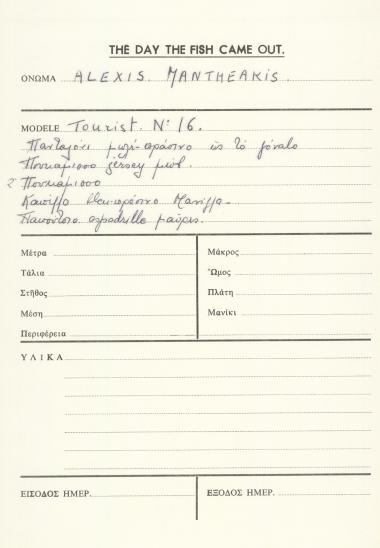 THE DAY THE FISH CAME OUT.
ΟΝΟΜΑ ALEXIS. MANTHEAKIS.
MODELE Tourist. No 16.
Πανταλόνι μωλ-πράσινο ώς τό γόνατο
Πουκαμισο jersey μωλ.
2 Πουκαμισο
Καπέλλο bleu-πράσινο Μανίλλα
Παπούτσια espadrille μαύρες.
Μέτρα
Μάκρος
Τάλια
Ὦμος
Στῆθος
Πλάτη
Μέση
Μανίκι
Περιφέρεια
ΥΛΙΚΑ
ΕΙΣΟΔΟΣ ΗΜΕΡ.
ΕΞΟΔΟΣ ΗΜΕΡ.